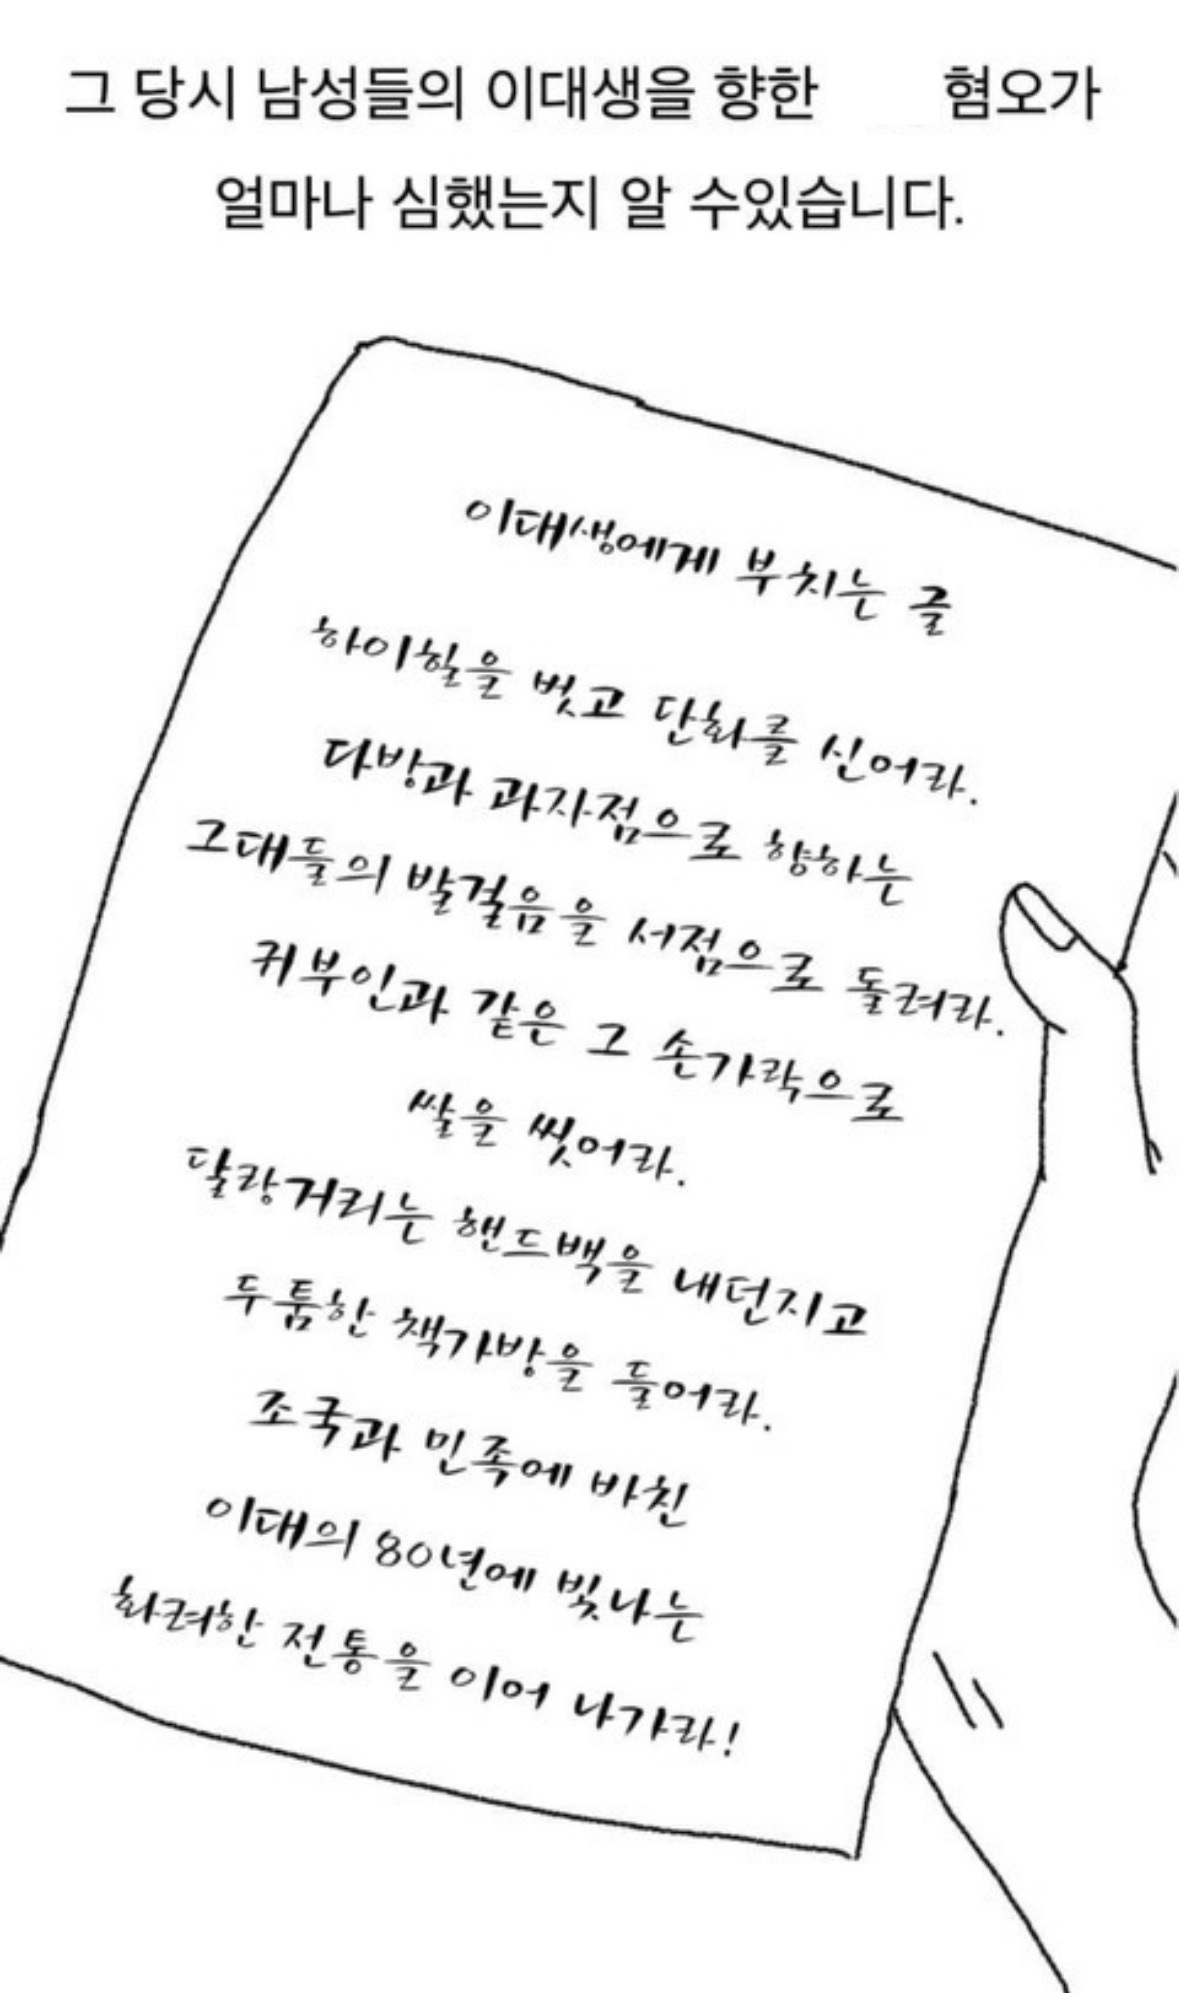 그 당시 남성들의 이대생을 향한 혐오가
얼마나 심했는지 알 수있습니다.
이대생에게 부치는 글
하이힐을 벗고 단화를 신어라.
다방과 과자점으로 향하는
그대들의 발걸음을 서점으로 돌려라.
귀부인과 같은 그 손가락으로
쌀을 씻어라.
달랑거리는 핸드백을 내던지고
두툼한 책가방을 들어라.
조국과 민족에 바친
이대의 80년에 빛나는
화려한 전통을 이어 나가라!